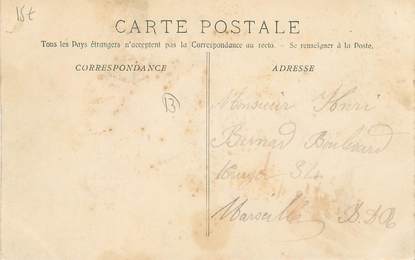 15€
CARTE POSTALE
Tous les Pays étrangers n'acceptent pas la Correspondance au recto. - Se renseigner à la Poste.
CORRESPONDANCE
ADRESSE
13
Monsieur Henri
Bernard Boulevard
Marseille B.D.R